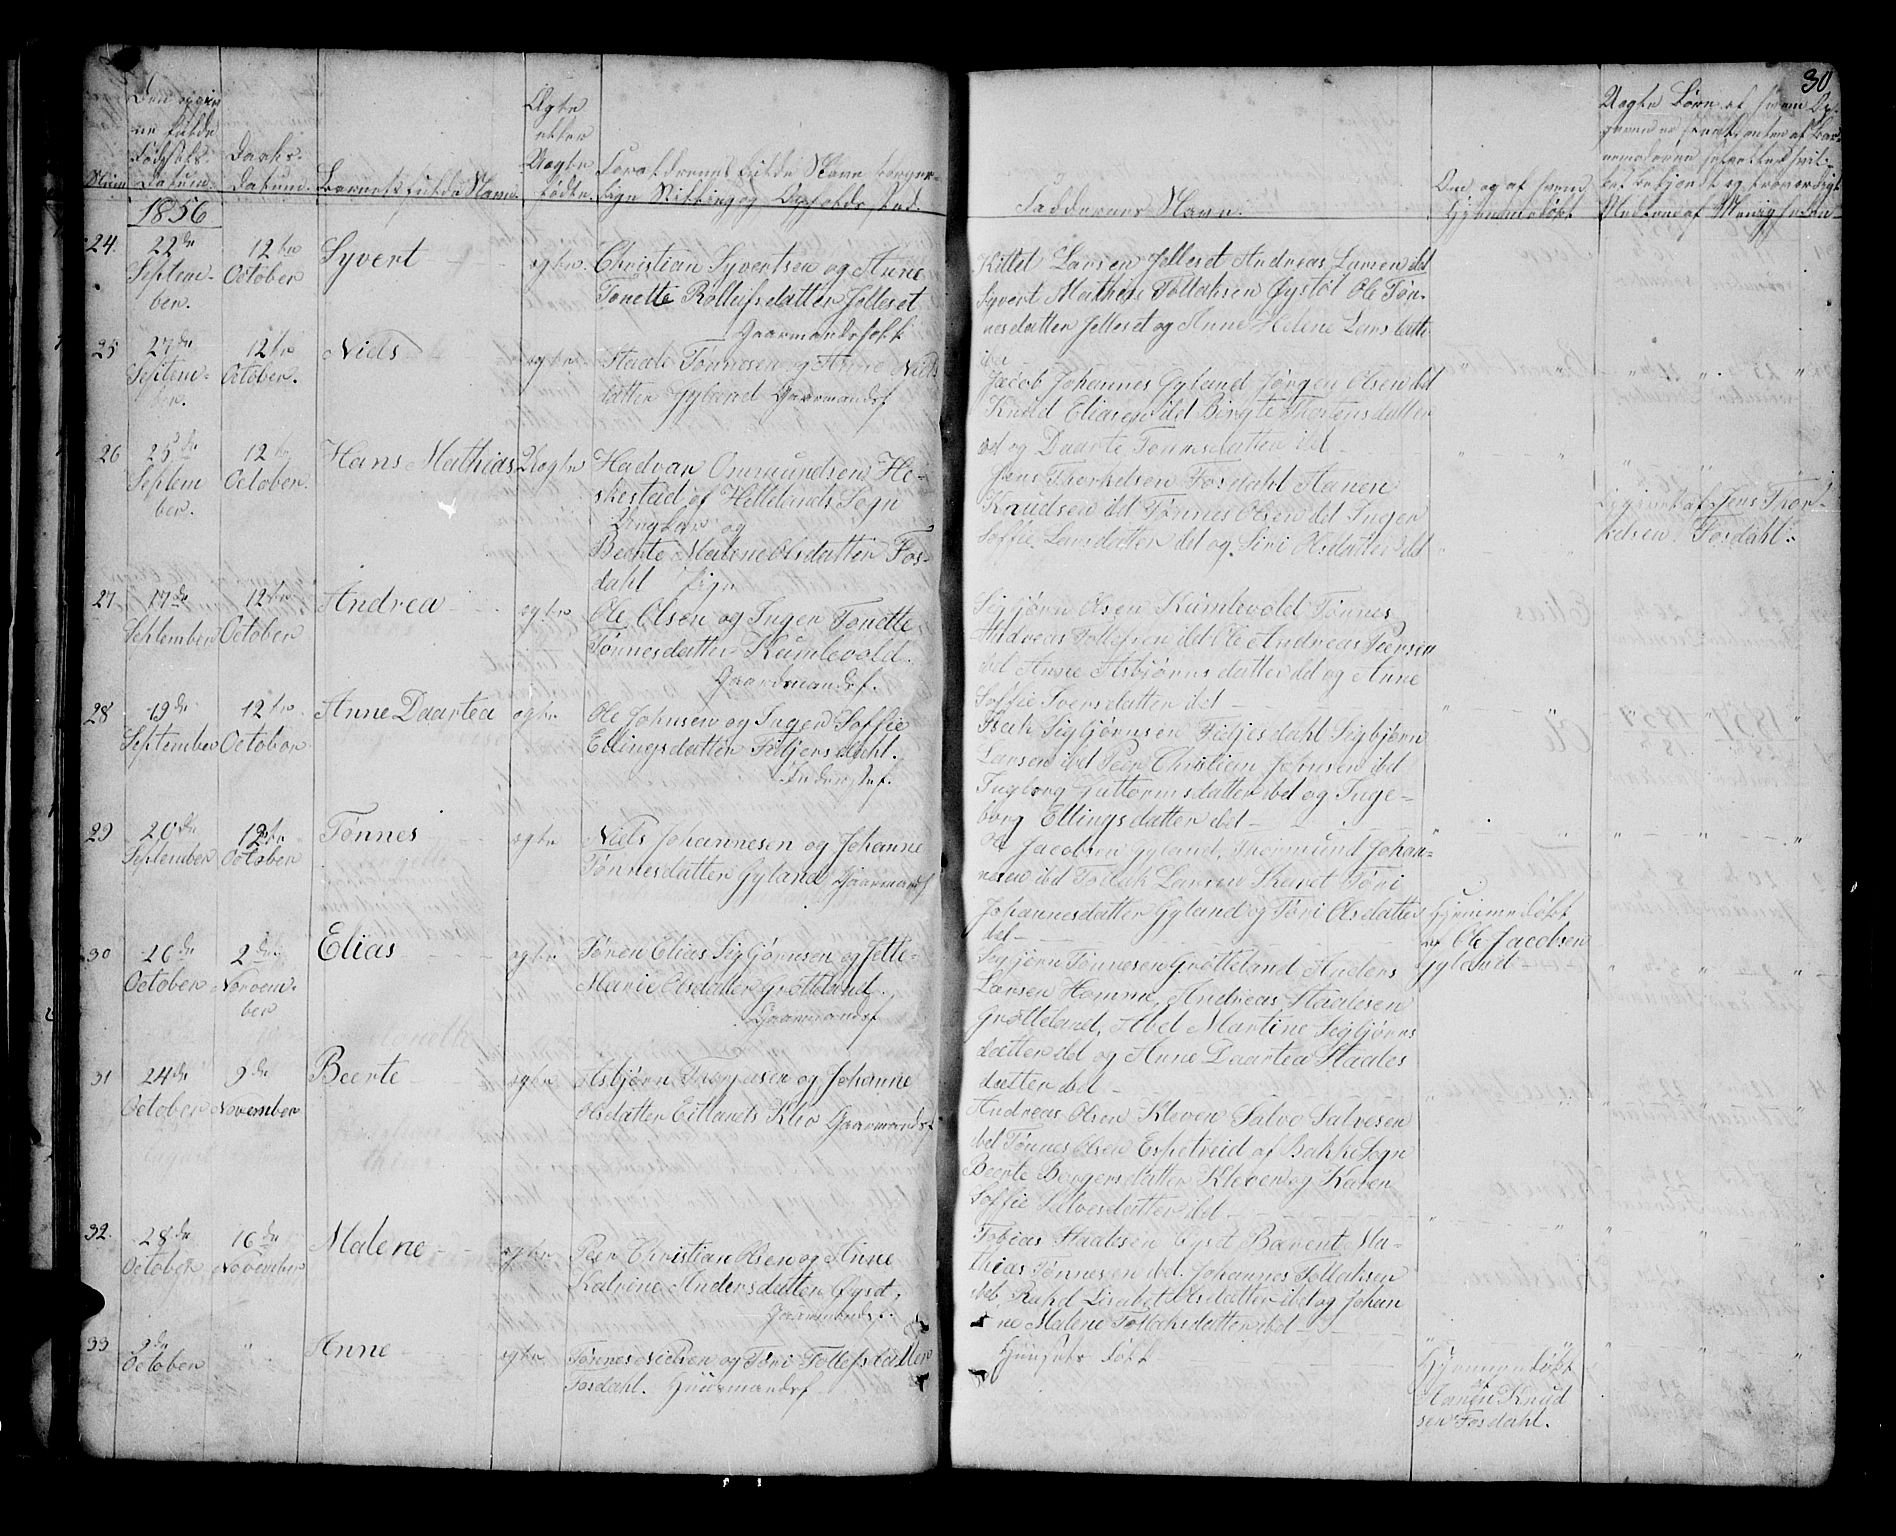 30
Den opgiv
ne fulde
Fødsels
Datum.
Daabs-
Datum.
Barnets fulde Navn.
Ægte
eller
Uægte
fødte.
Forældrenes fulde Navn borger-
lige Stilling og Opholdssted.
Faddernes Navn.
Om og af hvem
Hjemmedøbt
1856
24.
22de
Septem-
ber.
12te
October
Syvert
ægte.
Christian Syvertsen og Anne
Tonette Rollufsdatter Jelleset
Gaarmandsfolk
Kittel Larsen Jelleset Andreas Larsen ibd
Syvert Mathias Tollaksen Øystøl Ole Tøn-
nesdatter Jelleset og Anne Helene Larsdatte
ibd
25
27de
Septem-
br.
12te
October.
Niels
ægte.
Staale Tønnesen og Anne Niels
datter Gyland Gaarmandsf
Jacob Johannes Gyland Jørgen Olsen ibd
Knud Eliasen ibd Birgte Thortensdatter
ibd og Daarte Tønnesdatter ibd
26
25de
Septem
ber.
12te
October.
Hans Mathias
Uægte
Hadvar Ommundsen He-
skestad af Hellelands Sogn
Ungkar og
Beerte Malene Olsdatter Fos-
dahl Pige
Jens Thorkelsen Fosdahl Aanen
Knudsen ibd Tønnes Olsen ibd Inger
Soffie Larsdatter ibd og Siri Olsdatter ibd
Udgivet af Jens Thor-
kelsen Fosdahl.
27
17de
September
12te
October
Andrea
ægte
Ole Olsen og Inger Tonette
Tønnesdatter Kumlevold.
Gaardmandsf.
Sigbjørn Olsen Kumlevold Tønnes
Andreas Tollefsen ibd Ole Andreas Peersen
ibd Anne Asbjørnsdatter ibd og Anne
Soffie Iversdatter ibd
28
19de
September
12te
October
Anne Daartea
ægte
Ole Johnsen og Inger Soffie
Ellingsdatter Fitjersdahl.
Inderstef.
Isak Sigbjørnsen Fidjesdahl Sigbjørn
Larsen ibd Peer Christian Johnsen ibd
Ingborg Guttormsdatter ibd og Inge-
borg Ellingsdatter ibd
29
20de
September
12te
October
Tønnes
ægte
Niels Johannesen og Johanne
Tønnesdatter Gyland Gaarmandsf
Ole Jacobsen Gyland, Thormund Johan-
nesen ibd Tollak Larsen Skevet Tøri
Johannesdatter Gyland og Tøri Olsdatter
ibd
Hjemmedøbt
af Ole Jacobsen
Gyland
30
26de
October
2den
Novem-
ber
Elias
ægte
Søren Elias Sigbjørnsen og Jette
Marie Olsdatter Grøtteland.
Gaarmandsf
Sigbjørn Tønnesen Grøtteland Anders
Larsen Homme, Andreas Staalesen
Grøtteland, Abel Martine Sigbjørns
datter ibd og Anne Daartea Staales
datter ibd
31
24de
October
9de
November
Beerte
ægte
Asbjørn Torjusen og Johanne
Olsdatter Eitlands Kleo Gaarmandsf
Andreas Olsen Kleven Salve Salvesen
ibd Tønnes Olsen Espetveid af Bakke Sogn
Beerte Børgersdatter Kleven og Karen
Soffie Salvesdatter ibd
32.
28de
October
16de
November
Malene
ægte
Peer Christian Olsen og Anne
Katrine Andersdatter Øysd,
Gaarmandsf.
Tobias Staalesen Øysd Barent Ma-
thias Tønnesen ibd. Johannes Tollaksen
ibd, Rakel Lisabet Olsdatter ibd og Johan
ne Malene Tollaksdatter ibd
33
9de
October
Anne
ægte
Tønnes Nielsen og Tøri Tollefsdatter
Fosdahl. Huusmandsf
Huusets Folk
Hjemmedøbt
af
Aanen Knud
sen Fosdahl.